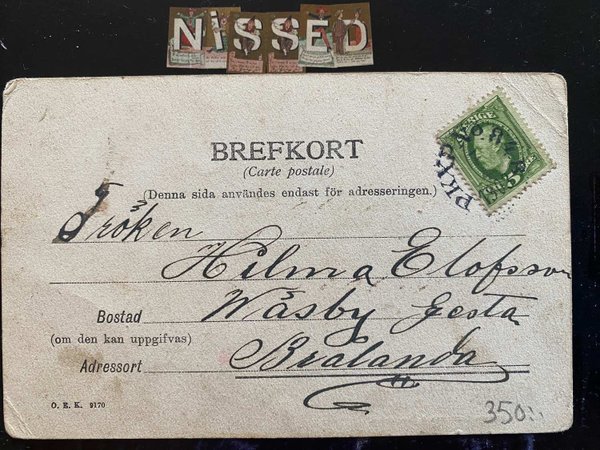 NiSSED
BREFKORT
(Carte postale)
(Denna sida användes endast för adresseringen.)
Fröken
Hilma Elofsson
Wäsby Gesta
Bostad
(om den kan uppgifvas)
Brålanda
Adressort
Ö. E. K. 9170
350:-
SVERIGE
5
PKXP No